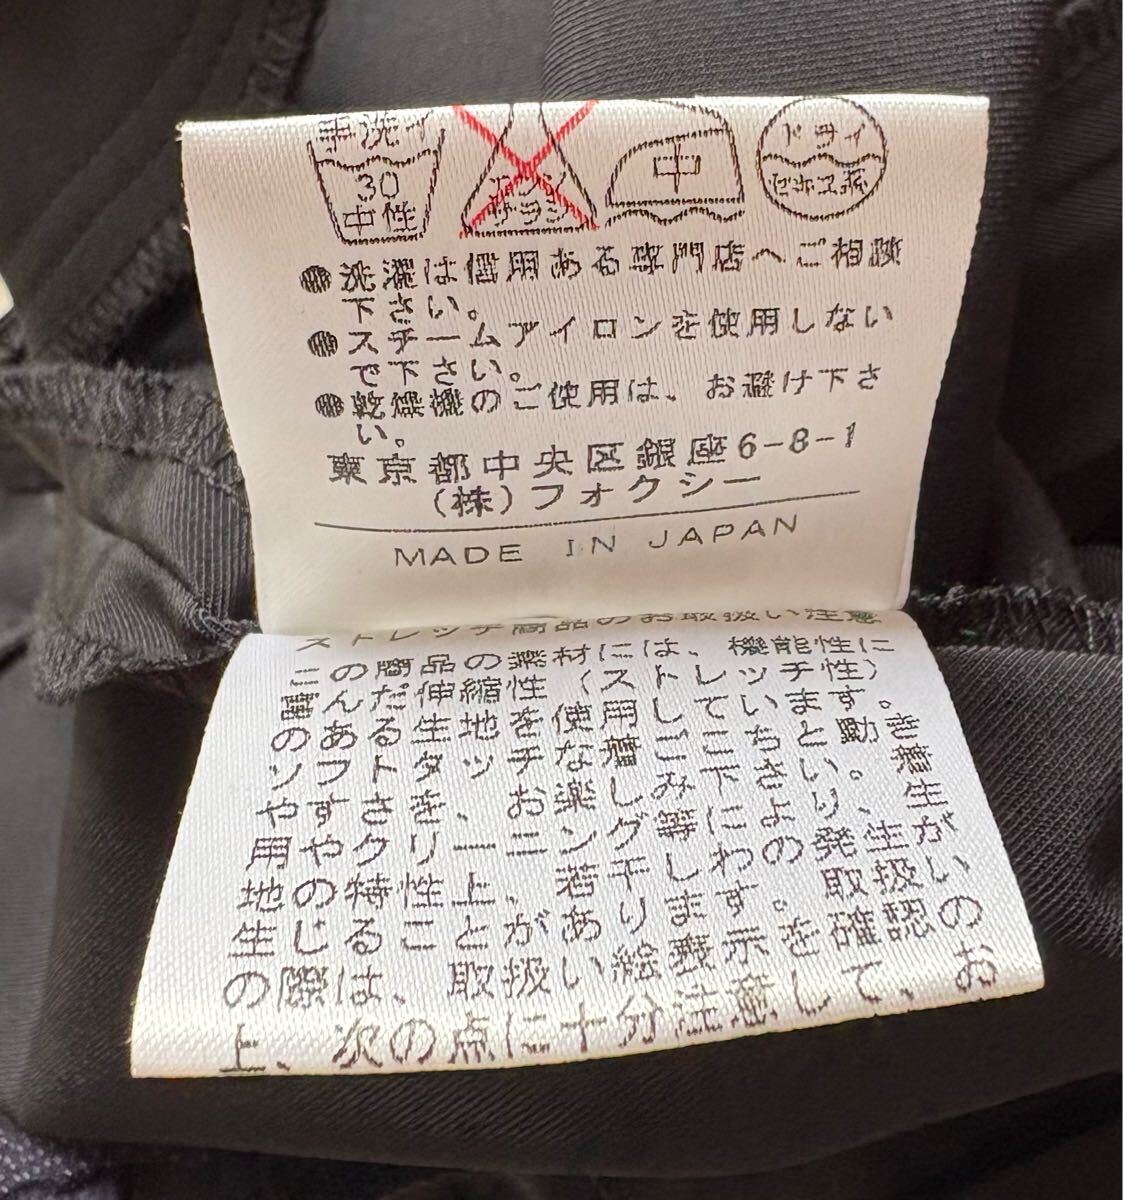 手洗イ
30
中性
エンソ
サラシ
中
ドライ
セキユ系
●洗濯は信用ある専門店へご相談
下さい。
●スチームアイロンを使用しない
で下さい。
●乾燥機のご使用は、お避け下さ
い。
東京都中央区銀座6-8-1
(株)フォクシー
MADE IN JAPAN
ストレッチ商品のお取扱い注意
この商品の素材には、機能性に
富んだ伸縮性（ストレッチ性）
のある生地を使用しています。
ソフトタッチな着ごこちと動き
やすさを、お楽しみ下さい。着
用やクリーニング等により、生
地の特性上、若干しわの発生が
生じることがあります。取扱い
の際は、取扱い絵表示を確認の
上、次の点に十分注意して、お